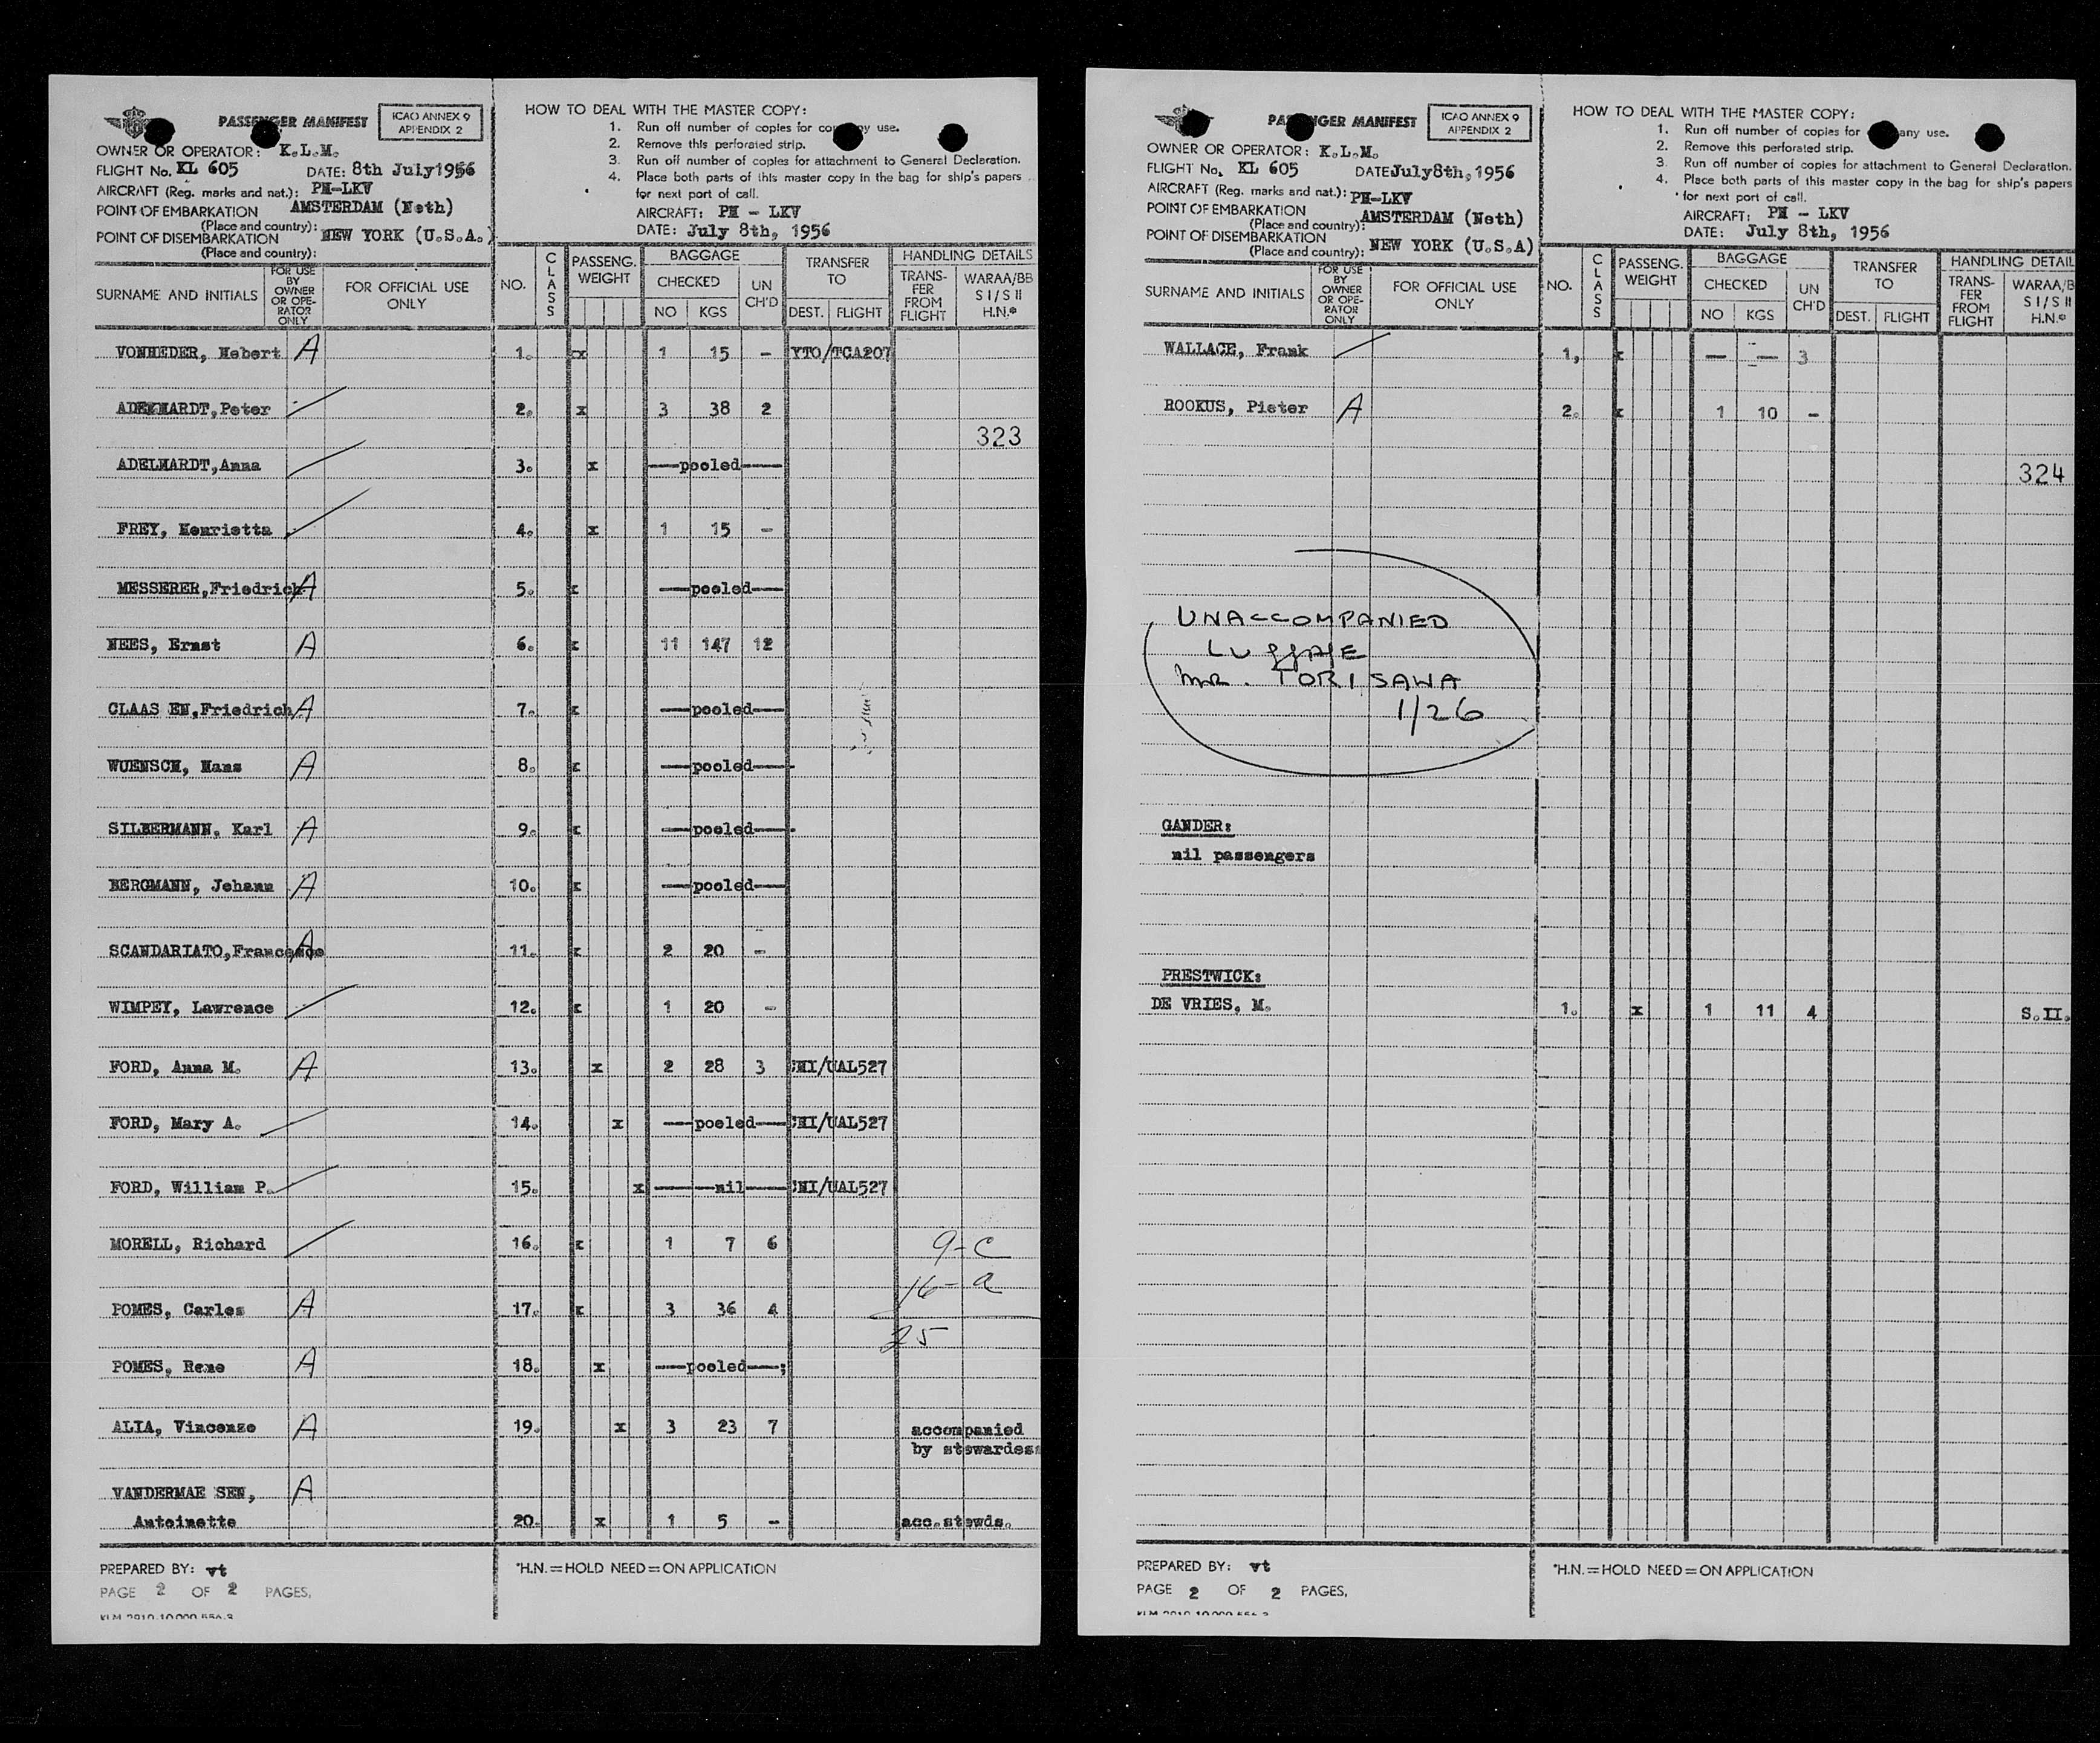 PASSENGER MANIFEST
ICAO ANNEX 9
APPENDIX 2
OWNER OR OPERATOR: K.L.M.
FLIGHT No. KL 605 DATE: 8th July1956
AIRCRAFT (Reg. marks and nat.): PH-LKV
POINT OF EMBARKATION AMSTERDAM (Neth)
(Place and country):
POINT OF DISEMBARKATION NEW YORK (U.S.A.)
(Place and country):
HOW TO DEAL WITH THE MASTER COPY:
1. Run off number of copies for company use.
2. Remove this perforated strip.
3. Run off number of copies for attachment to General Declaration.
4. Place both parts of this master copy in the bag for ship's papers
for next port of call.
AIRCRAFT: PH - LKV
DATE: July 8th, 1956
SURNAME AND INITIALS
FOR USE BY OWNER OR OPE- RATOR ONLY
FOR OFFICIAL USE ONLY
NO. CLASS PASSENG. WEIGHT BAGGAGE TRANSFER TO HANDLING DETAILS
CHECKED UN CH'D TRANS- FER FROM FLIGHT WARAA/BB S I/S II H.N.*
NO KGS DEST. FLIGHT
VONHEDER, Hebert A 1. x 1 15 - YTO/TCA207
ADELHARDT,Peter 2. x 3 38 2
323
ADELHARDT,Anna 3. x ---pooled---
FREY, Henrietta 4. x 1 15 -
MESSERER,Friedrich A 5. x ---pooled---
NEES, Ernst A 6. x 11 147 12
CLAAS EN,Friedrich A 7. x ---pooled---
WUENSCH, Hans A 8. x ---pooled---
SILBERMANN, Karl A 9. x ---pooled---
BERGMANN, Johann A 10. x ---pooled---
SCANDARIATO,Francesco A 11. x 2 20 -
WIMPEY, Lawrence 12. x 1 20 -
FORD, Anna M. A 13. x 2 28 3 CHI/UAL527
FORD, Mary A. 14. x ---pooled--- CHI/UAL527
FORD, William P. 15. x ---nil--- CHI/UAL527
MORELL, Richard 16. x 1 7 6 9-C
16-a
POMES, Carlos A 17. x 3 36 4
25
POMES, Rene A 18. x ---pooled---
ALIA, Vincenzo A 19. x 3 23 7 accompanied
by stewardess
VANDERMAE SEN, A
Antoinette 20. x 1 5 - acc.stewds.
PREPARED BY: vt
PAGE 2 OF 2 PAGES,
*H.N.=HOLD NEED=ON APPLICATION
PASSENGER MANIFEST
ICAO ANNEX 9
APPENDIX 2
OWNER OR OPERATOR: K.L.M.
FLIGHT No. KL 605 DATE July8th,1956
AIRCRAFT (Reg. marks and nat.): PH-LKV
POINT OF EMBARKATION AMSTERDAM (Neth)
(Place and country):
POINT OF DISEMBARKATION
(Place and country): NEW YORK (U.S.A)
HOW TO DEAL WITH THE MASTER COPY:
1. Run off number of copies for company use.
2. Remove this perforated strip.
3. Run off number of copies for attachment to General Declaration.
4. Place both parts of this master copy in the bag for ship's papers
for next port of call.
AIRCRAFT: PH - LKV
DATE: July 8th, 1956
SURNAME AND INITIALS
FOR USE BY OWNER OR OPE- RATOR ONLY
FOR OFFICIAL USE ONLY
NO. CLASS PASSENG. WEIGHT BAGGAGE TRANSFER TO HANDLING DETAIL
CHECKED UN CH'D TRANS- FER FROM FLIGHT WARAA/B S I/S II H.N.*
NO KGS DEST. FLIGHT
WALLACE, Frank 1, x - - 3
ROOKUS, Pieter A 2. x 1 10 -
324
UNACCOMPANIED
LUGGAGE
MR. TORISAWA
1/26
GANDER:
nil passengers
PRESTWICK:
DE VRIES, M. 1. x 1 11 4 S.II.
PREPARED BY: vt
PAGE 2 OF 2 PAGES,
*H.N.=HOLD NEED=ON APPLICATION